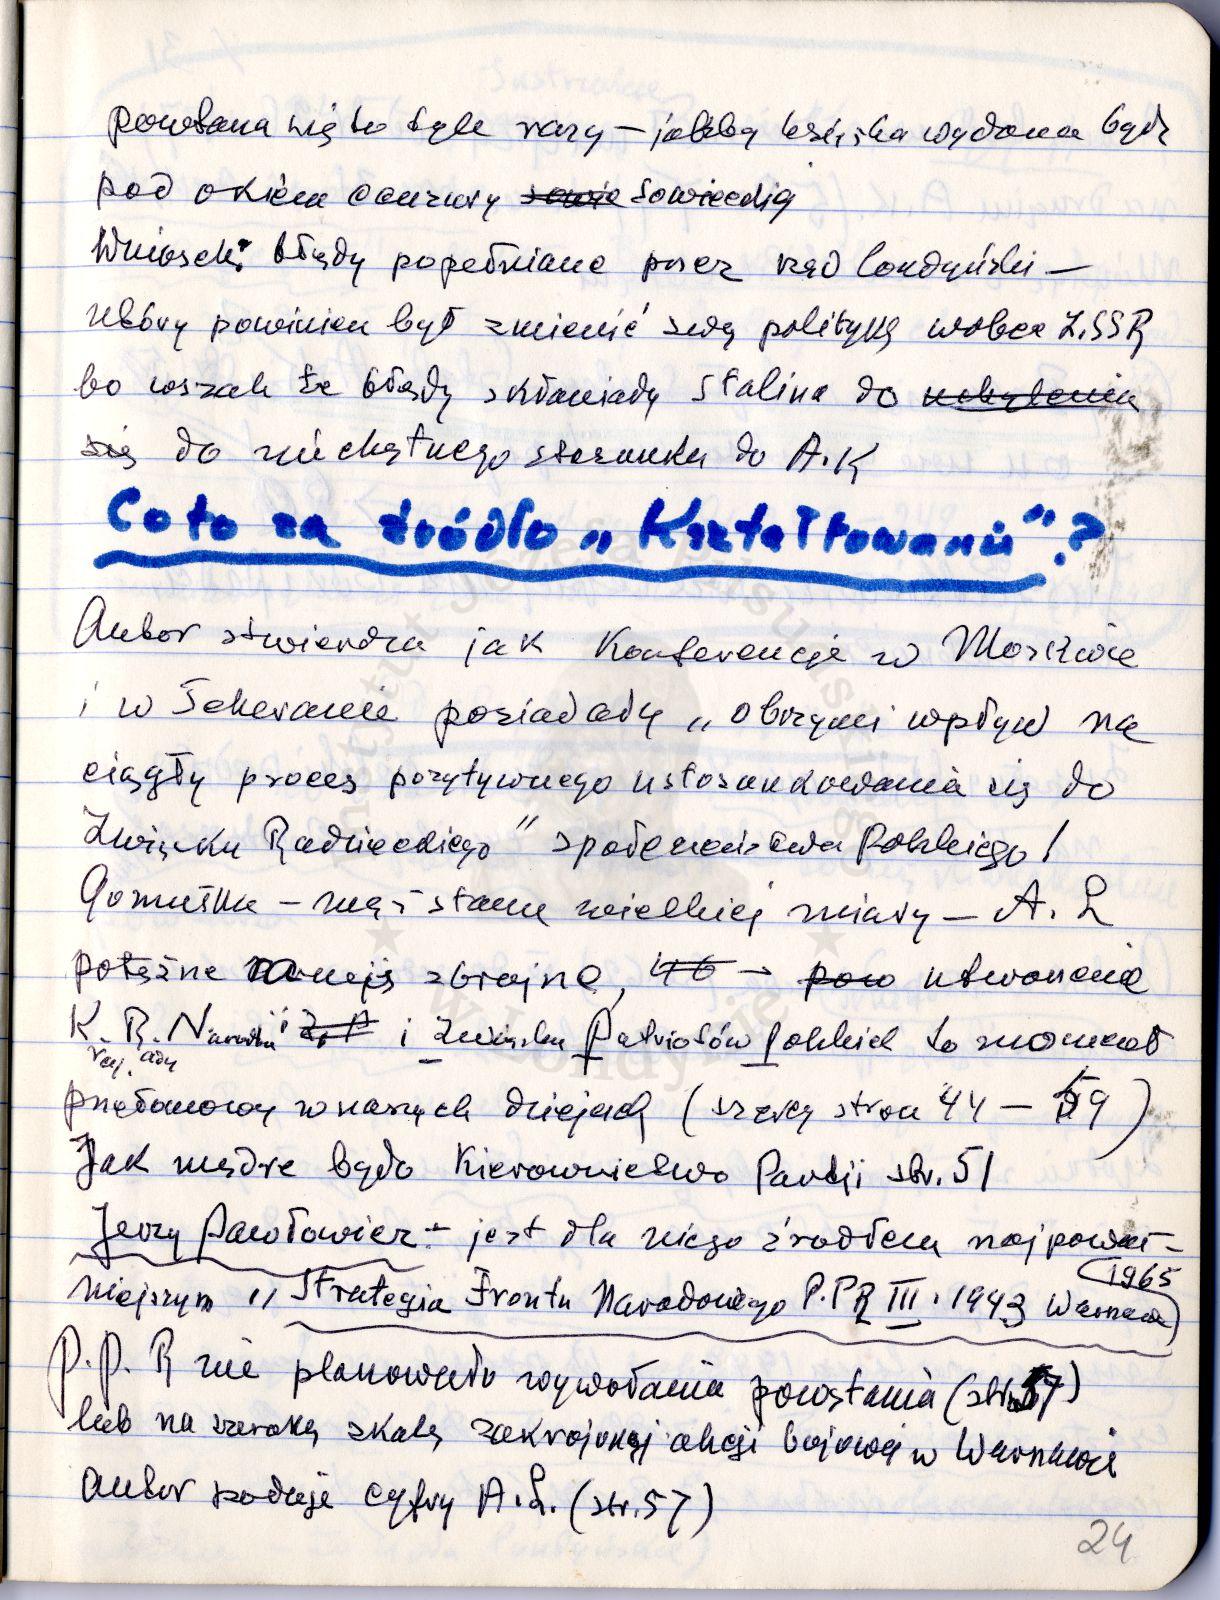 powtana się to tyle razy – jakby książka wydana być
pod okiem cenzury sowie sowieckiej
Wniosek: błędy popełniane przez rząd londyński –
który powinien był zmienić swą politykę wobec Z.SSR
bo wszak te błędy skłaniały Stalina do uchylenia
się do niechętnego stosunku do A.K
Co to za źródło „Kształtowanie"?
Autor stwierdza jak Konferencje w Moskwie
i w Teheranie posiadały „obrzymi wpływ na
ciągły proces pozytywnego ustosunkowania się do
Związku Radzieckiego" społeczeństwa Polskiego!
Gomułka – mąż stanu wielkiej miary – A.L
potężne armije zbrojne, 46 – pow utworzenie
K. R. Narodu i Z.P i Związku Patriotów Polskich to moment
raj. ady
przełomowy w naszych dziejach (szereg stron 44 – 59)
Jak mądre było Kierownictwo Partji str. 51
Jerzy Pawłowicz – jest dla niego źródłem najpoważ–
niejszym „Strategia Frontu Narodowego P.PR III. 1943 Warszawa
1965)
P.P. R nie planowało wywołania powstania (str. 57)
lub na szeroką skalę zakrojonej akcji bojowej w Warszawie
Autor podaje cyfry A.L. (str. 57)
24
Instytut Józefa Piłsudskiego
w Londynie